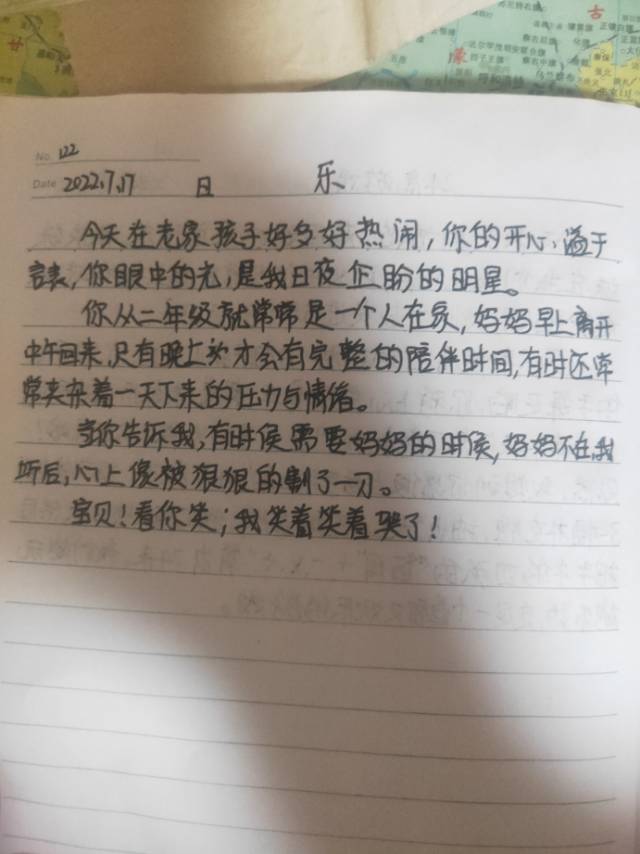 古
蒙
甘
No. 122
Date 2022.7.17 日 乐
今天在老家孩子好多好热闹,你的开心溢于
言表,你眼中的光,是我日夜企盼的明星。
你从二年级就常常是一个人在家,妈妈早上离开
中午回来,只有晚上妈才会有完整的陪伴时间,有时还常
常夹杂着一天下来的压力与情绪。
当你告诉我,有时候需要妈妈的时候,妈妈不在,我
听后,心上像被狠狠的割了一刀。
宝贝!看你笑;我笑着笑着哭了!